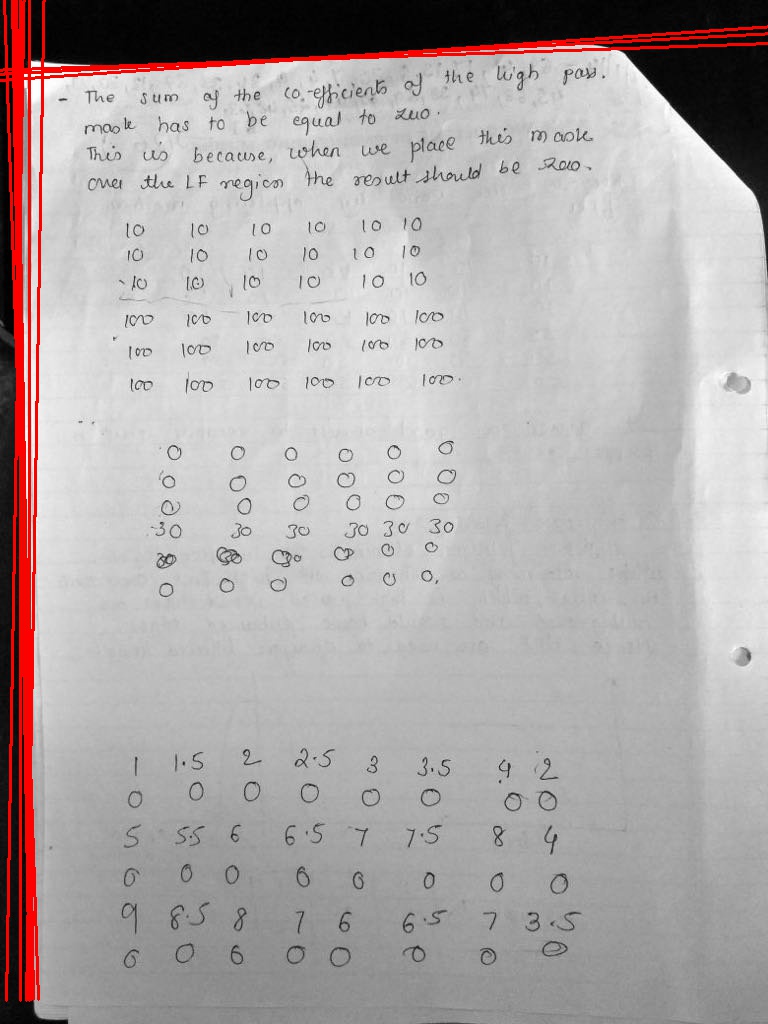 - The sum of the co-efficients of the high pass.
mask has to be equal to zero.
This is because, when we place this mask
over the LF region the result should be zero.
10 10 10 10 10 10
10 10 10 10 10 10
10 10 10 10 10 10
100 100 100 100 100 100
100 100 100 100 100 100
100 100 100 100 100 100.
0 0 0 0 0 0
0 0 0 0 0 0
0 0 0 0 0 0
30 30 30 30 30 30
0 0 0
0 0 0 0 0 0.
1 1.5 2 2.5 3 3.5 4 2
0 0 0 0 0 0 0 0
5 5.5 6 6.5 7 7.5 8 4
0 0 0 0 0 0 0 0
9 8.5 8 7 6 6.5 7 3.5
0 0 0 0 0 0 0 0